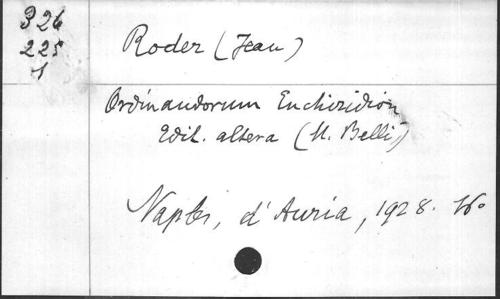 326
225
1
Roder (Jean)
Ordinandorum Enchiridion
Edit. altera (M. Belli)
Naples, d'Auria, 1928. 16°